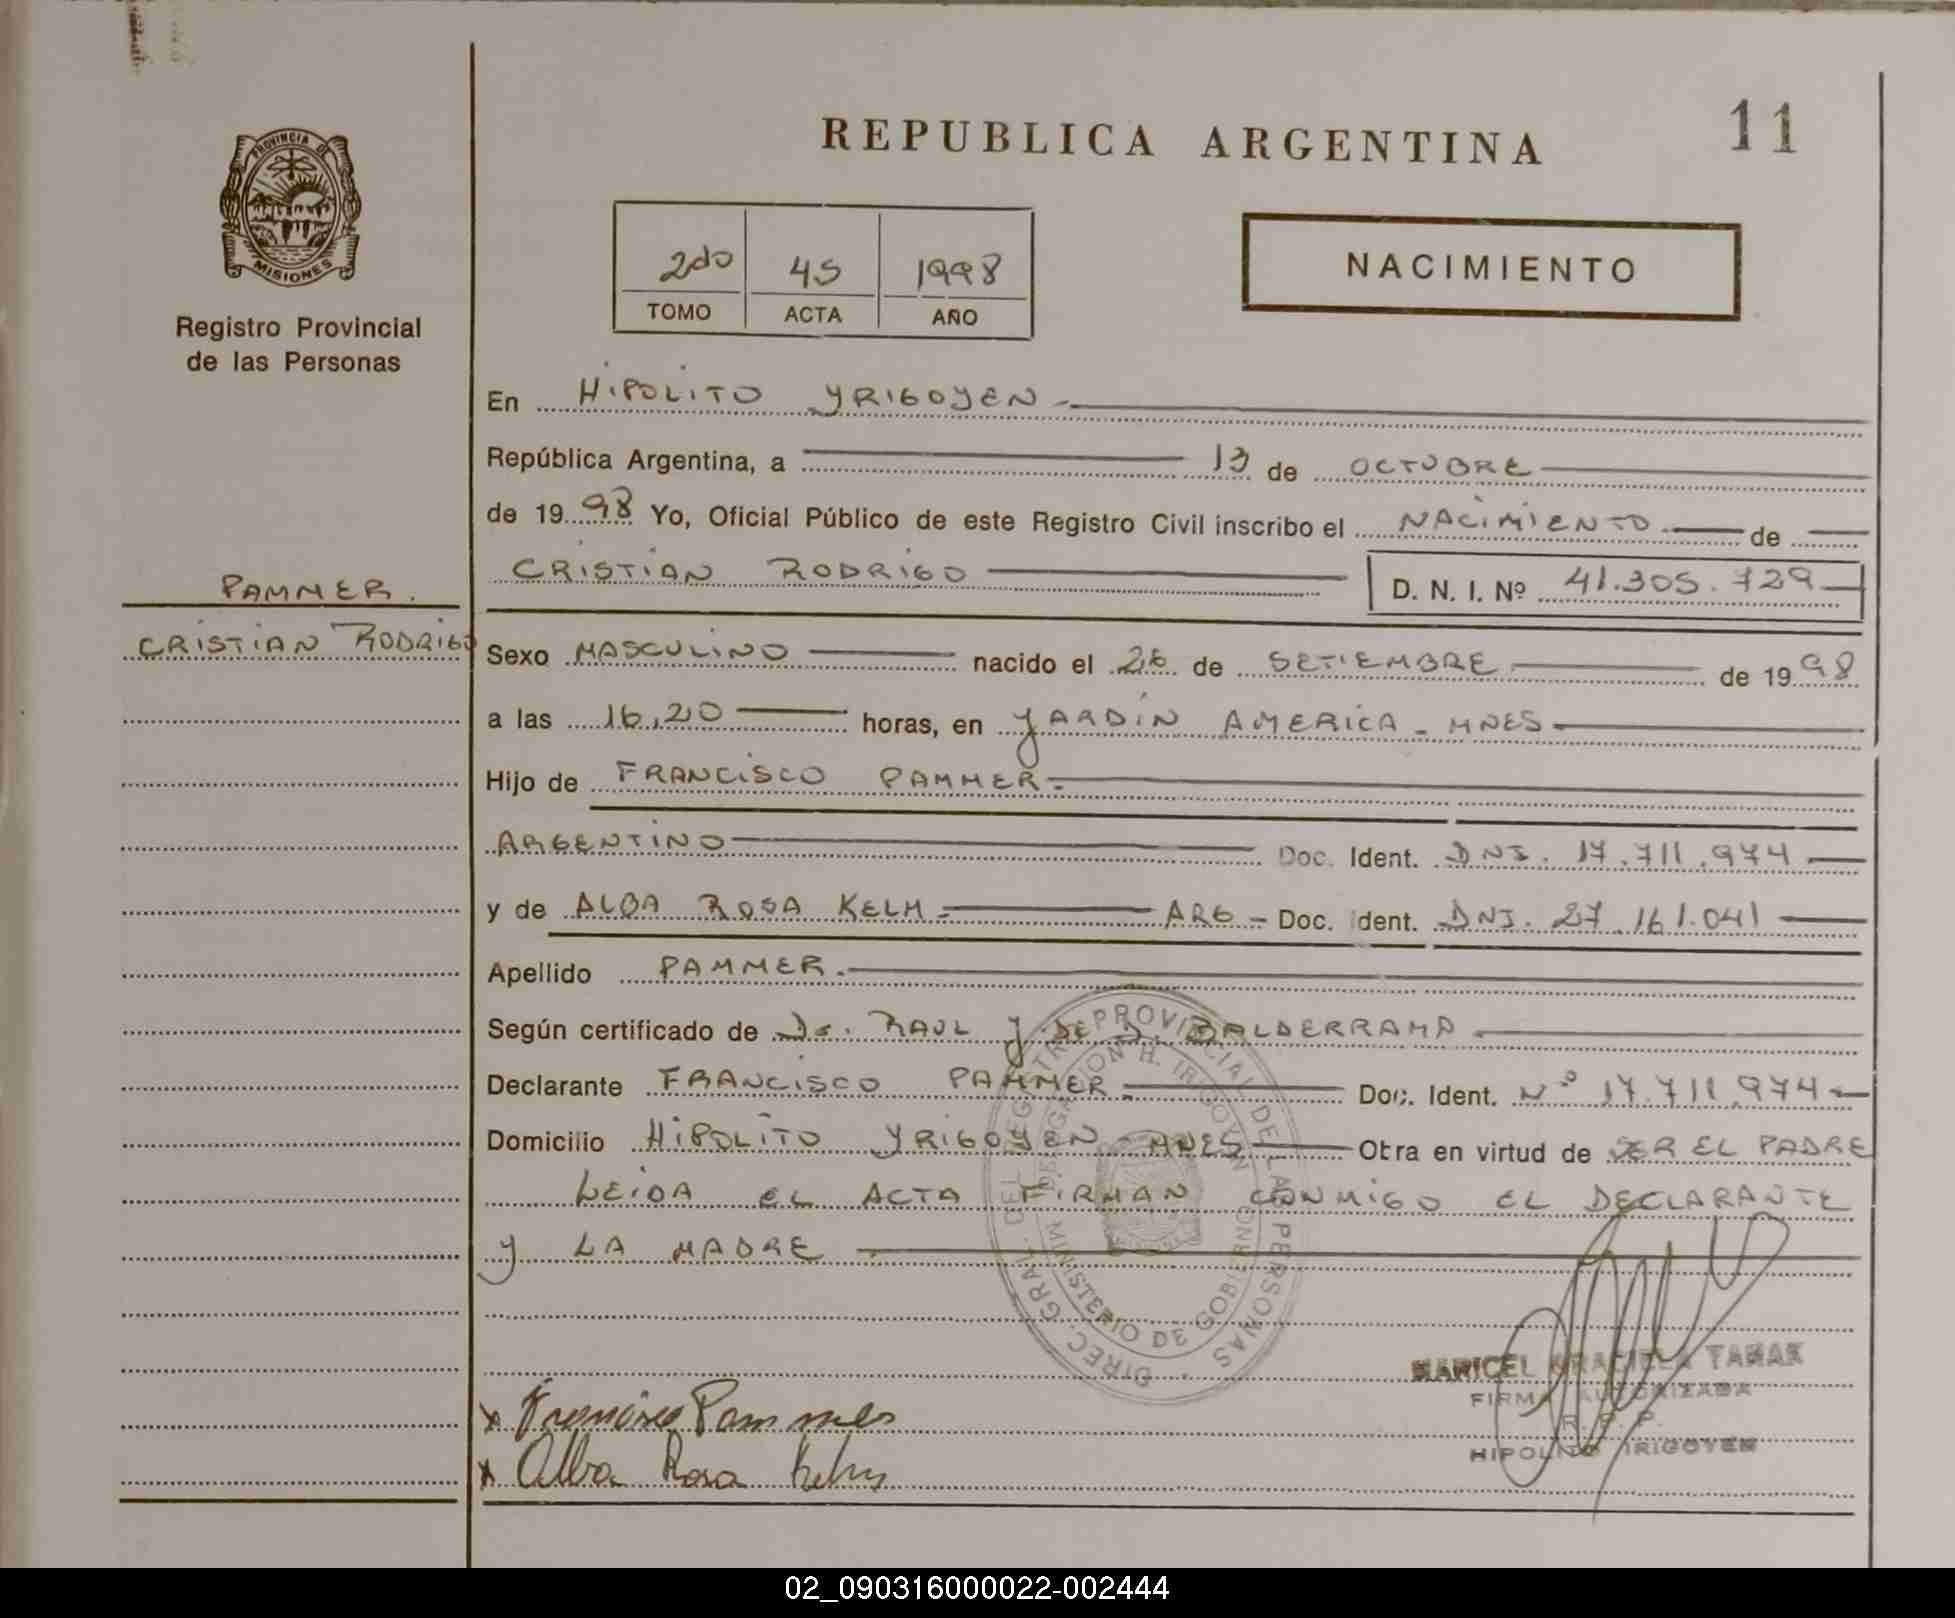 REPUBLICA ARGENTINA
11
PROVINCIA DE
MISIONES
Registro Provincial
de las Personas
2do 45 1998
TOMO ACTA AÑO
NACIMIENTO
En HIPOLITO YRIGOYEN
República Argentina, a 13 de OCTUBRE
de 1998 Yo, Oficial Público de este Registro Civil inscribo el NACIMIENTO de
CRISTIAN RODRIGO D. N. I. Nº 41.305.729
PAMMER.
CRISTIAN RODRIGO
Sexo MASCULINO nacido el 26 de SETIEMBRE de 1998
a las 16,20 horas, en JARDIN AMERICA - MNES
Hijo de FRANCISCO PAMMER
ARGENTINO Doc. Ident. DNI. 17.711.974
y de ALBA ROSA KELM ARG - Doc. Ident. DNI. 27.161.041
Apellido PAMMER.
Según certificado de Dr. RAUL J DE J. BALDERRAMA
Declarante FRANCISCO PAMMER Doc. Ident. Nº 17.711.974
Domicilio HIPOLITO YRIGOYEN - MNES Otra en virtud de SER EL PADRE
LEIDA EL ACTA FIRMAN CONMIGO EL DECLARANTE
Y LA MADRE
DIREC. GRAL. DEL REGISTRO PROVINCIAL DE LAS PERSONAS
DELEGACION H. IRIGOYEN
MINISTERIO DE GOBIERNO
MARICEL GRACIELA TANAK
FIRMA AUTORIZADA
R. P. P.
HIPOLITO IRIGOYEN
x Francisco Pammer
x Alba Rosa Kelm
02_090316000022-002444